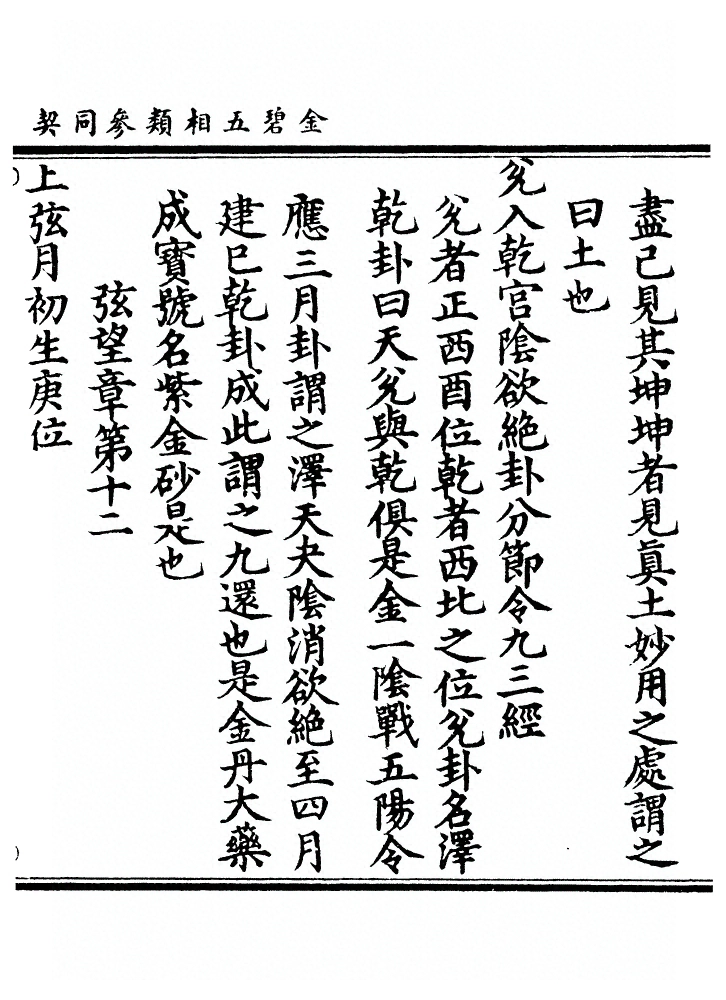 金碧五相類參同契
盡已見其坤坤者見真土妙用之處謂之
曰土也
兊入乾宮陰欲絕卦分節令九三經
兊者正西酉位乾者西北之位兊卦名澤
乾卦曰天兊與乾俱是金一陰戰五陽令
應三月卦謂之澤天夬陰消欲絕至四月
建巳乾卦成此謂之九還也是金丹大藥
成寳號名紫金砂是也
弦望章第十二
上弦月初生庚位